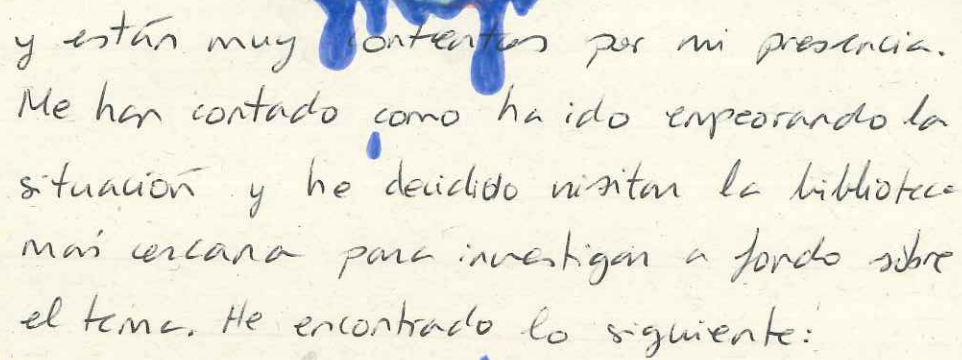 y están muy contentos por mi presencia.
Me han contado como ha ido empeorando la
situación y he decidido visitar la biblioteca
más cercana para investigar a fondo sobre
el tema. He encontrado lo siguiente: